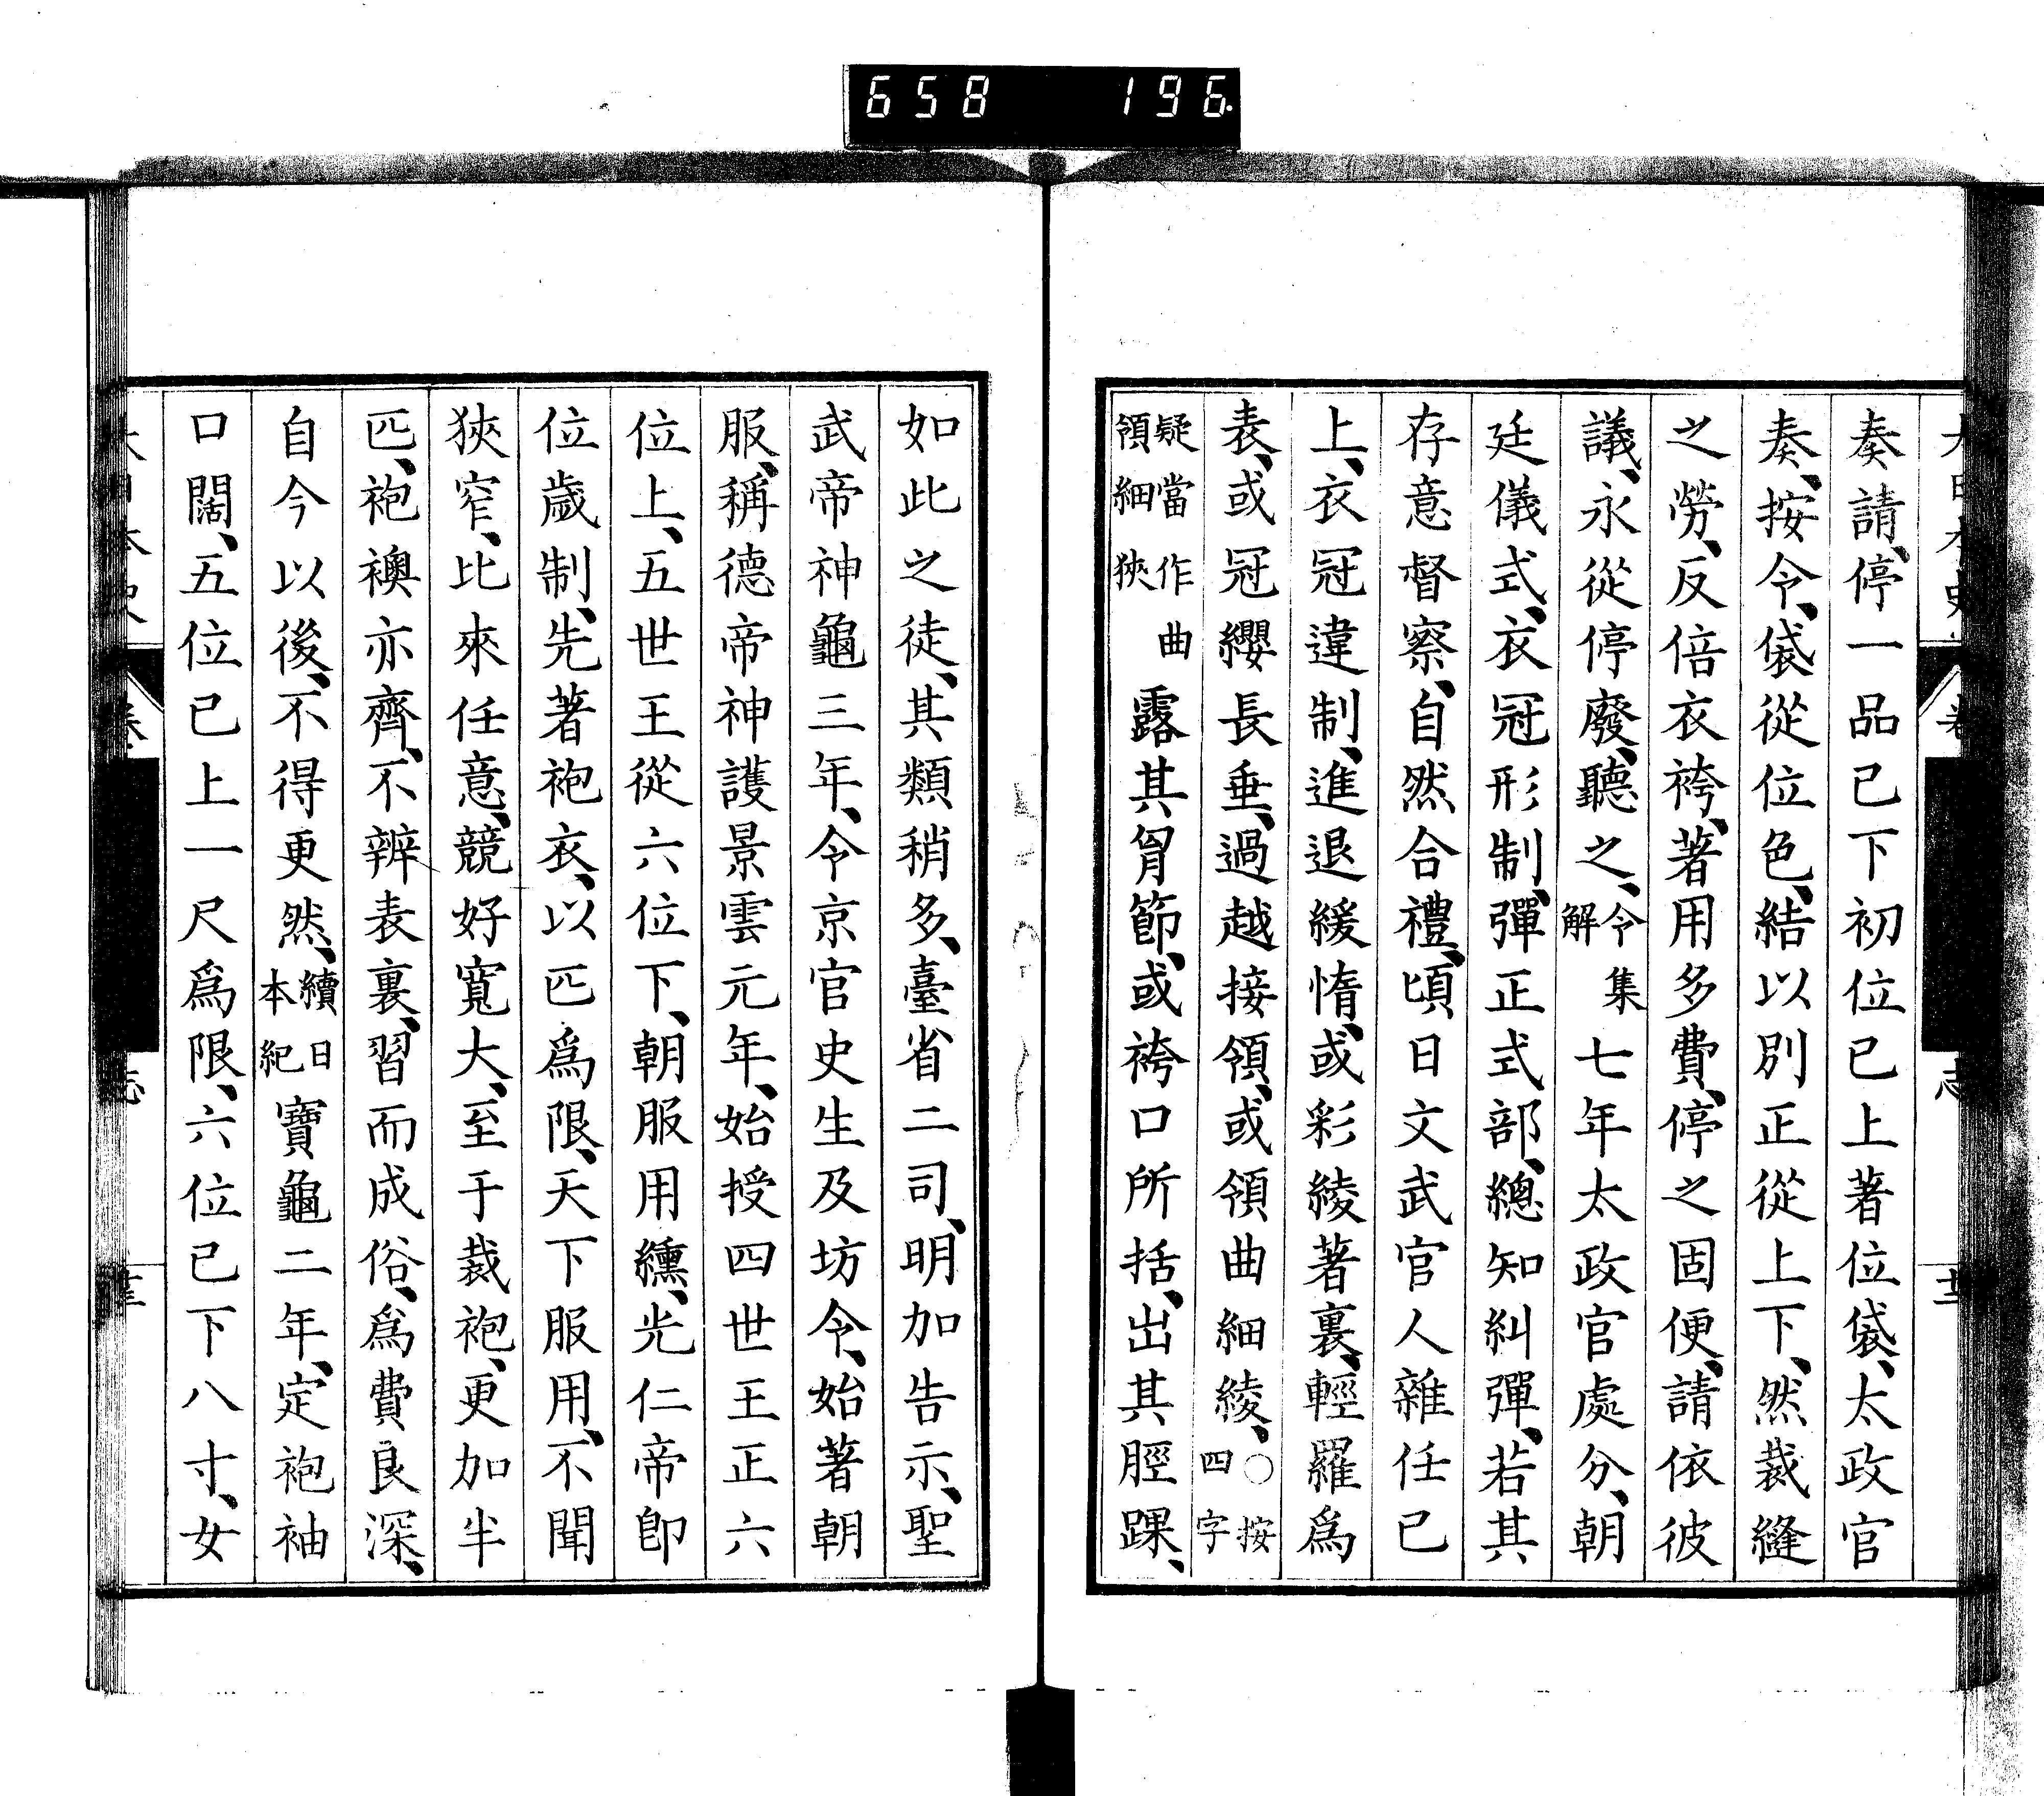 658 196
奏請、停一品已下初位已上著位袋、太政官
奏、按令、袋從位色、結以別正從上下、然裁縫
之勞、反倍衣袴、著用多費、停之固便、請依彼
議、永從停廢、聽之、令集解七年太政官處分、朝
廷儀式、衣冠形制、彈正式部、總知糾彈、若其
存意督察、自然合禮、頃日文武官人雜任已
上、衣冠違制、進退緩惰、或彩綾著裏、輕羅爲
表、或冠纓長垂、過越接領、或領曲細綾、○按四字
疑當作曲領細狹露其胷節、或袴口所括、出其脛踝、
如此之徒、其類稍多、臺省二司、明加告示、聖
武帝神龜三年、令京官史生及坊令、始著朝
服、稱德帝神護景雲元年、始授四世王正六
位上、五世王從六位下、朝服用纁、光仁帝卽
位歲制、先著袍衣、以匹爲限、天下服用、不聞
狹窄、比來任意、競好寬大、至于裁袍、更加半
匹、袍襖亦齊、不辨表裏、習而成俗、爲費良深、
自今以後、不得更然、續日本紀寶龜二年、定袍袖
口闊、五位已上一尺爲限、六位已下八寸、女